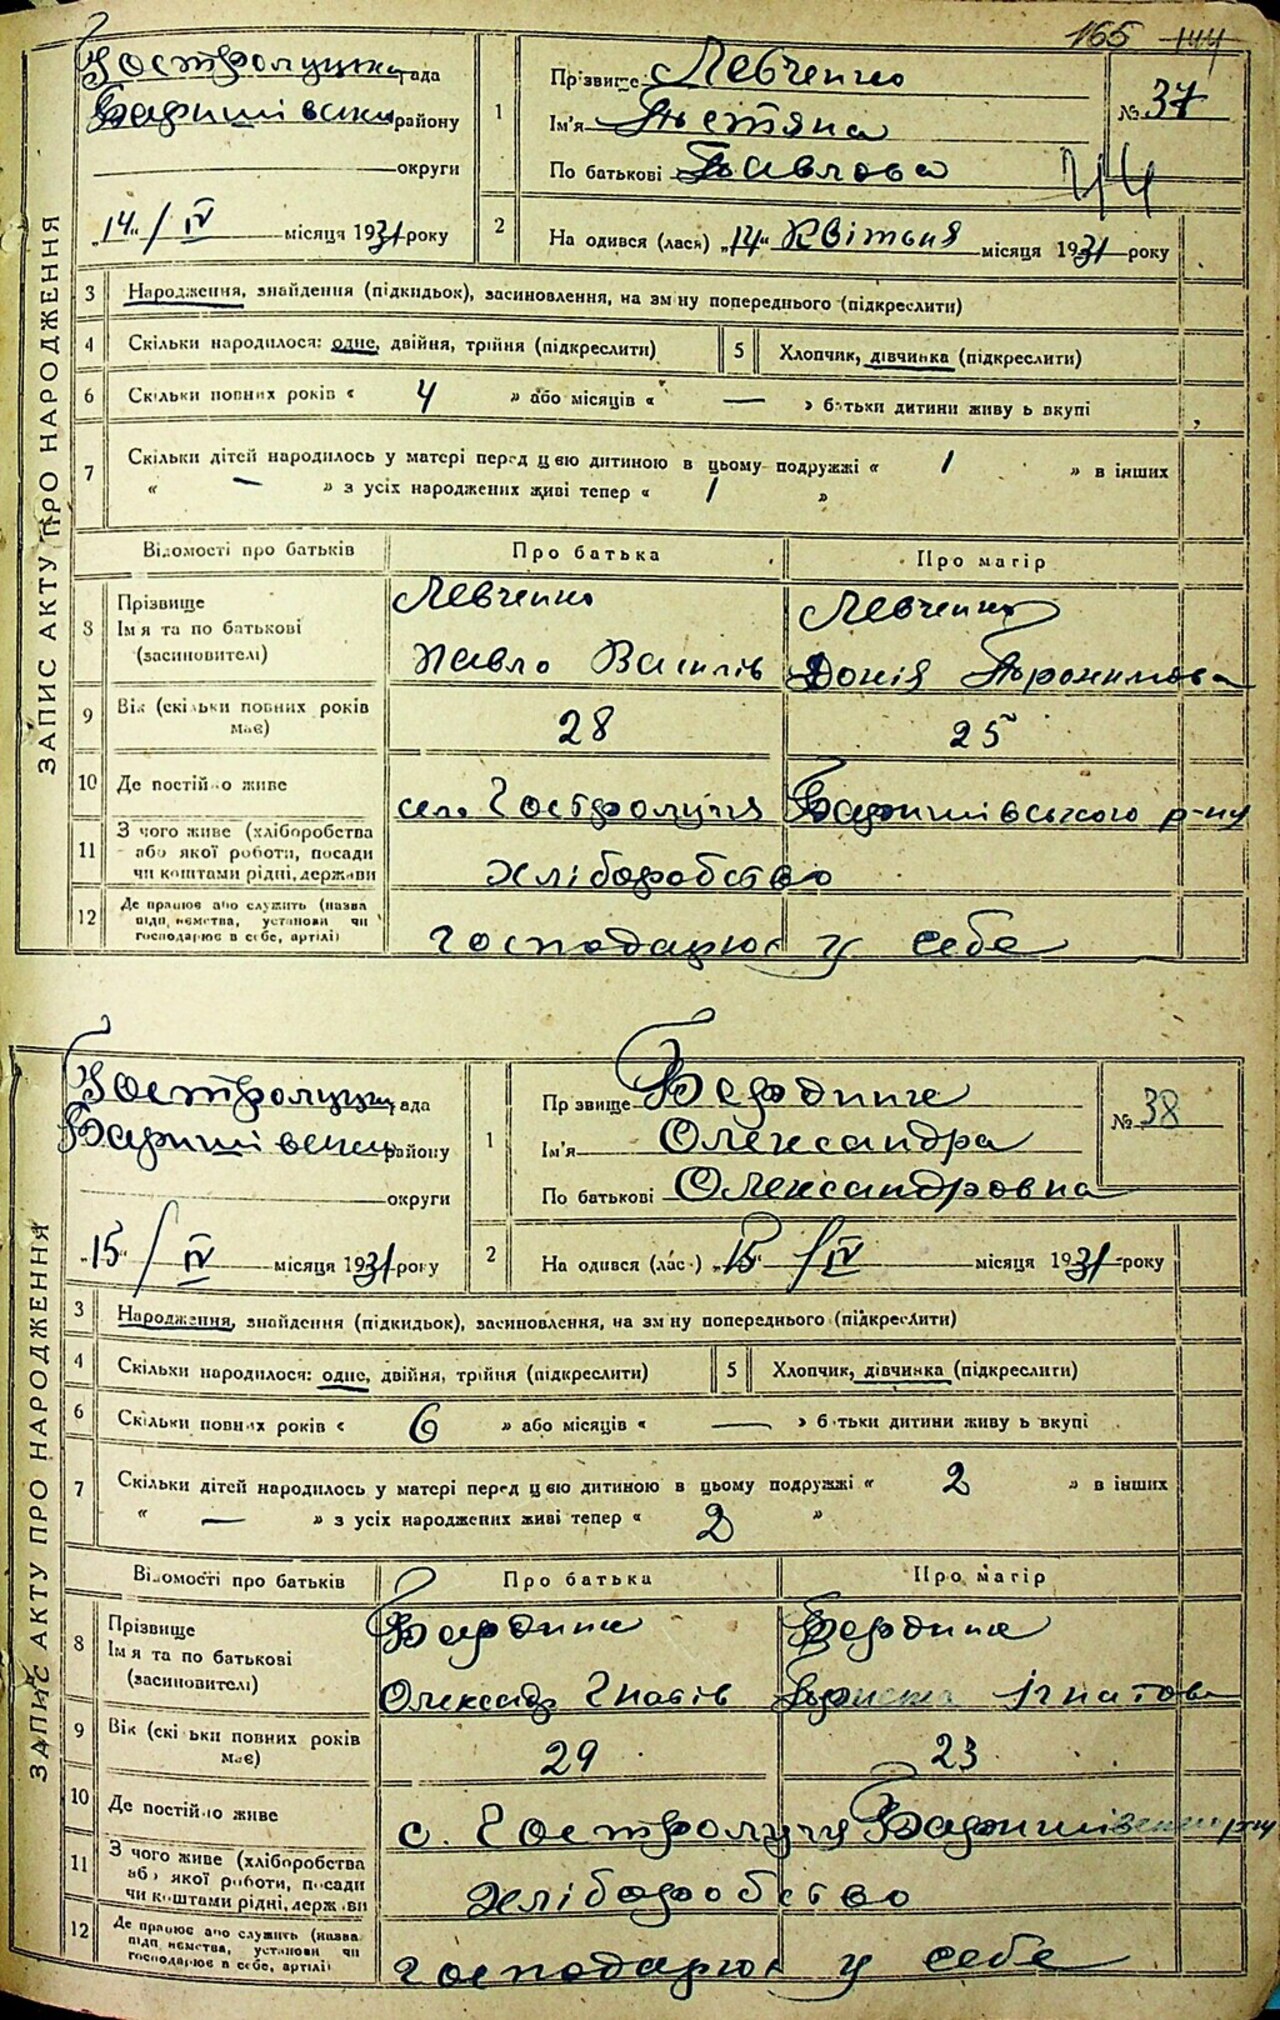 165 144
ЗАПИС АКТУ ПРО НАРОДЖЕННЯ
Гостролуцька рада
Баришівськ району
округи
„14“ / IV місяця 1931 року
1
Прізвище Левченко
Ім'я Тетяна
По батькові Павлова
№ 37
44
2 На одився (лася) „14“ Квітня місяця 1931 року
3 Народження, знайдення (підкидьок), засиновлення, на зм ну попереднього (підкреслити)
4 Скільки народилося: одне, двійня, трійня (підкреслити) 5 Хлопчик, дівчинка (підкреслити)
6 Скільки повних років « 4 » або місяців « — » батьки дитини живу ь вкупі
7 Скільки дітей народилось у матері перед цею дитиною в цьому подружжі « 1 » в інших
« — » з усіх народжених живі тепер « 1 »
Відомості про батьків Про батька Про матір
8 Прізвище Левченко Левченко
Ім я та по батькові
(засиновителі) Павло Василів Донія Трохимова
9 Вік (скільки повних років має) 28 25
10 Де постійно живе сел. Гостролуччя Баришівського р-ну
11 З чого живе (хліборобства
або якої роботи, посади
чи коштами рідні, держави хліборобство
12 Де працює або служить (назва
підп иємства, установи чи
господарює в себе, артілі) господарює у себе
ЗАПИС АКТУ ПРО НАРОДЖЕННЯ
Гостролуцьк рада
Баришівськ району
округи
„15“ / IV місяця 1931 року
1
Пр звище Бардпик
Ім'я Олександра
По батькові Олександровна
№ 38
2 На одився (лас ) „15“ / IV місяця 1931 року
3 Народження, знайдення (підкидьок), засиновлення, на зм ну попереднього (підкреслити)
4 Скільки народилося: одне, двійня, трійня (підкреслити) 5 Хлопчик, дівчинка (підкреслити)
6 Скільки повних років « 6 » або місяців « — » б тьки дитини живу ь вкупі
7 Скільки дітей народилось у матері перед цею дитиною в цьому подружжі « 2 » в інших
« — » з усіх народжених живі тепер « 2 »
Відомості про батьків Про батька Про матір
8 Прізвище
Ім я та по батькові
(засиновителі) Олександр Гнатів Ігнатова
9 Вік (скі ьки повних років має) 29 23
10 Де постійно живе с. Гостролуччя Баришівськ р-ну
11 З чого живе (хліборобства
або якої роботи, посади
чи коштами рідні, держ ви хліборобство
12 Де працює або служить (назва
підп иємства, установи чи
господарює в себе, артілі) господарює у себе